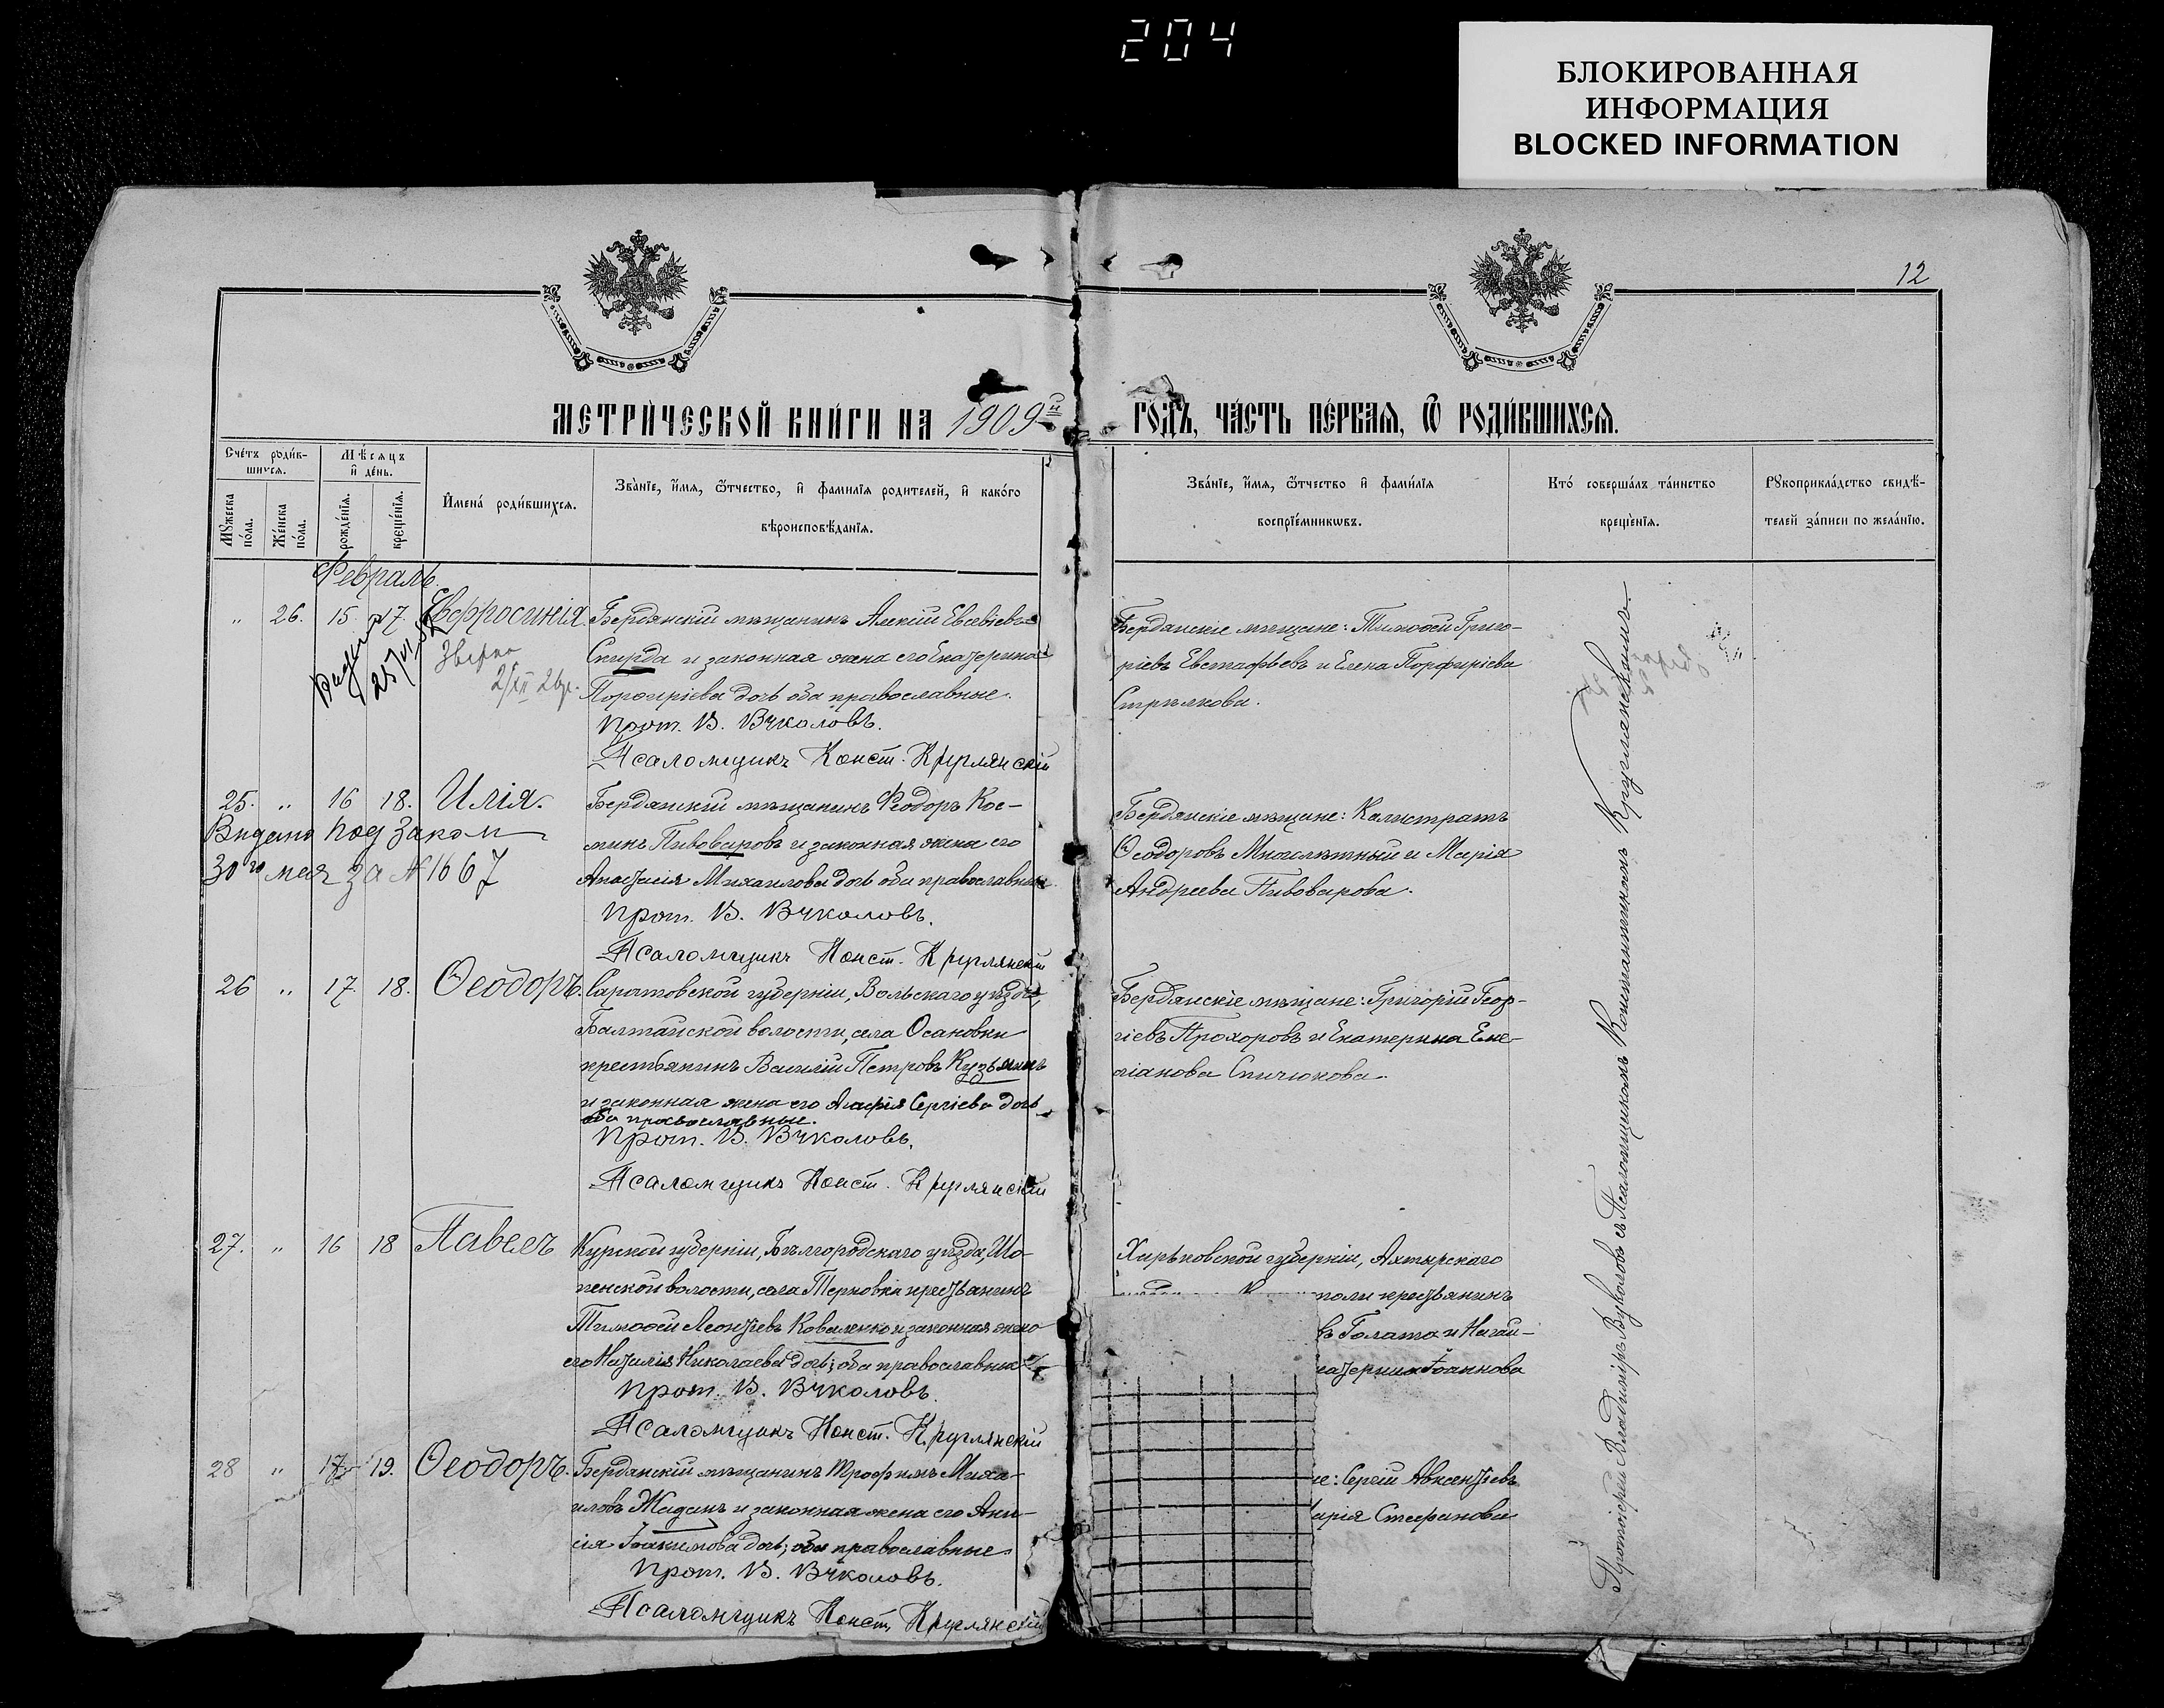 204
БЛОКИРОВАННАЯ
ИНФОРМАЦИЯ
BLOCKED INFORMATION
12
МЕТРИ́ЧЕСКОЙ КНИ́ГИ НА 1909й
ГОДЪ, ЧА́СТЬ ПЕ́РВАЯ, Ѿ РОДИ́ВШИХСЯ.
Сче́тъ роди́в-
шихся.
Мѣ́сяцъ
и҆ де́нь.
Мꙋ́жеска
по́ла.
Же́нска
по́ла.
рожде́нїя.
креще́нїя.
И҆мена̀ роди́вшихся.
Зва́нїе, и҆́мя, ѻ҆́тчество, и҆ фами́лїя роди́телей, и҆ како́го
вѣроисповѣ́данїя.
Зва́нїе, и҆́мя, ѻ҆́тчество и҆ фами́лїя
воспрїе́мникѡвъ.
Кто̀ соверша́лъ та́инство
креще́нїя.
Рꙋкоприкла́дство свидѣ́-
телей за́писи по жела́нїю.
Февраль.
" 26. 15. 17. Евфросинія. Бердянскій мѣщанинъ Алексій Евсевіевъ
Скирда и законная жена его Екатерина
Порфиріева дочь оба православные.
Прот. В. Вуколовъ.
Псаломщикъ Конст. Круглянскій
Звірно
Бердянскіе мѣщане: Тимоѳей Григо-
ріевъ Евстафьевъ и Елена Порфиріева
Стрѣлкова.
25. " 16 18. Илія. Бердянскій мѣщанинъ Ѳеодоръ Кос-
минъ Пивоваровъ и законная жена его
Анастасія Михаилова дочь оба православные.
Прот. В. Вуколовъ.
Псаломщикъ Конст. Круглянскій
Видано под закон
30го мая за № 1667
Бердянскіе мѣщане: Калистратъ
Ѳеодоровъ Многолѣтный и Марія
Андреева Пивоварова.
26 " 17. 18. Ѳеодоръ. Саратовской губерніи, Вольскаго уѣзда,
Балтайской волости, села Осановки
крестьянинъ Василій Петровъ Кузьминъ
и законная жена его Агафія Сергіева дочь
оба православные.
Прот. В. Вуколовъ.
Псаломщикъ Конст. Круглянскій
Бердянскіе мѣщане: Григорій Геор-
гіевъ Прохоровъ и Екатерина Еме-
ліанова Спичюкова.
27. " 16 18 Павелъ Курской губерніи, Бѣлгородскаго уѣзда, Шо-
пенской волости, села Терновки крестьянинъ
Тимоѳей Леонтіевъ Коваленко и законная жена
его Наталія Николаева дочь; оба православные
Прот. В. Вуколовъ.
Псаломщикъ Конст. Круглянскій
Харьковской губерніи, Ахтырскаго
поли крестьянинъ
въ Голата и Ногай-
катерина Іоаннова
28 " 17 19. Ѳеодоръ. Бердянскій мѣщанинъ Трофимъ Миха-
иловъ Жаданъ и законная жена его Ани-
сія Іоакимова дочь; оба православные
Прот. В. Вуколовъ.
Псаломщикъ Конст. Круглянскій
не: Сергій Авксентіевъ
арія Стефанова
Протоіерей Владиміръ Вуколовъ съ Псаломщикомъ Константиномъ Круглянскимъ